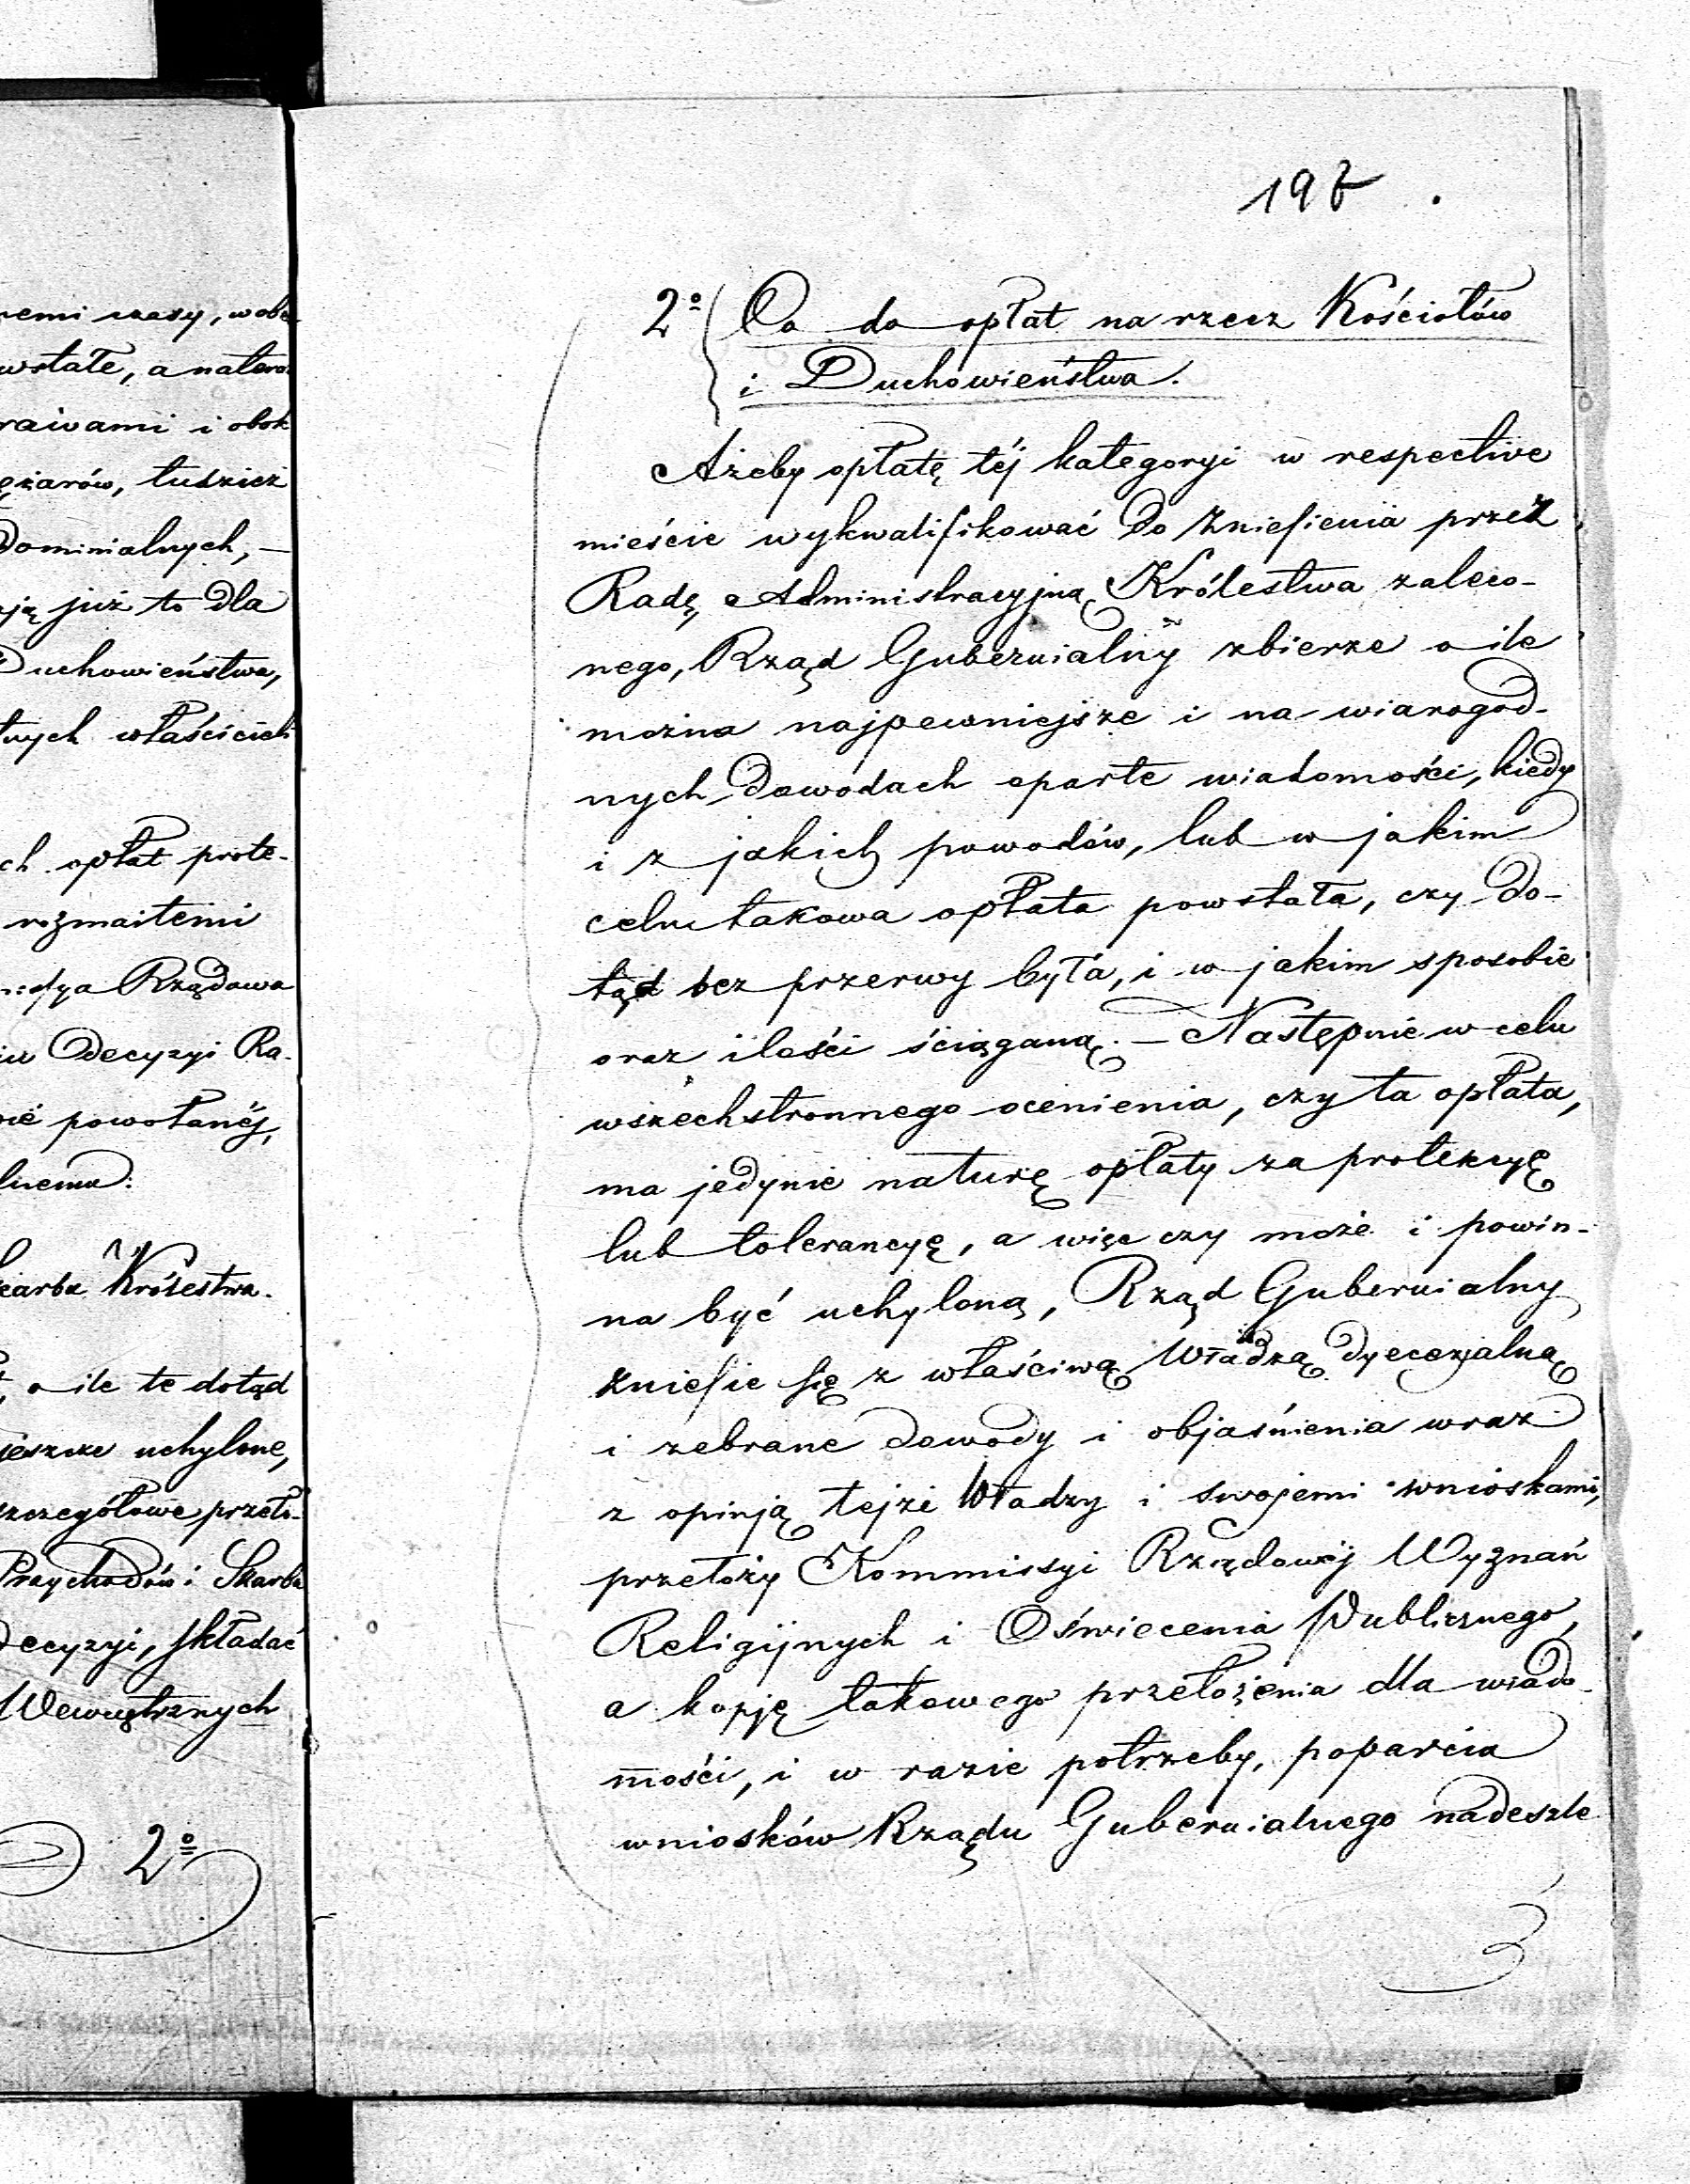 remi czasy, w obe
wstałe, a natera
rawami i obok
ężarów, tudzież
Dominialnych, —
ają już to dla
Duchowieństwa,
tnych właścicieli
ch opłat prote-
rozmaitemi
Rządowa
Decyzyi Ra-
powołanéj,
karbu Królestwa.
o ile te dotąd
jeszcze uchylone,
szczegółowe przeło-
Przychodów i Skarbu
Decyzyi, składać
Wewnętrznych
2º
197
2º Co do opłat na rzecz Kościołów
i Duchowieństwa.
Ażeby opłatę téj kategoryi w respective
mieście wykwalifikować do zniesienia przez
Radę Administracyjną Królestwa zaleco-
nego, Rząd Gubernialny zbierze o ile
można najpewniejsze i na wiarogod-
nych dowodach oparte wiadomości, kiedy
i z jakich powodów, lub w jakim
celu takowa opłata powstała, czy do-
tąd bez przerwy była, i w jakim sposobie
oraz ilości ściąganą. — Następnie w celu
wszechstronnego ocenienia, czy ta opłata,
ma jedynie naturę opłaty za protekcyę
lub tolerancyę, a więc czy może i powin-
na być uchyloną, Rząd Gubernialny
zniesie się z właściwą Władzą dyecezjalną
i zebrane dowody i objaśnienia wraz
z opinją tejże Władzy i swojemi wnioskami,
przełoży Kommissyi Rządowéj Wyznań
Religijnych i Oświecenia Publicznego,
a kopję takowego przełożenia dla wiado-
mości, i w razie potrzeby, poparcia
wniosków Rządu Gubernialnego nadeszle